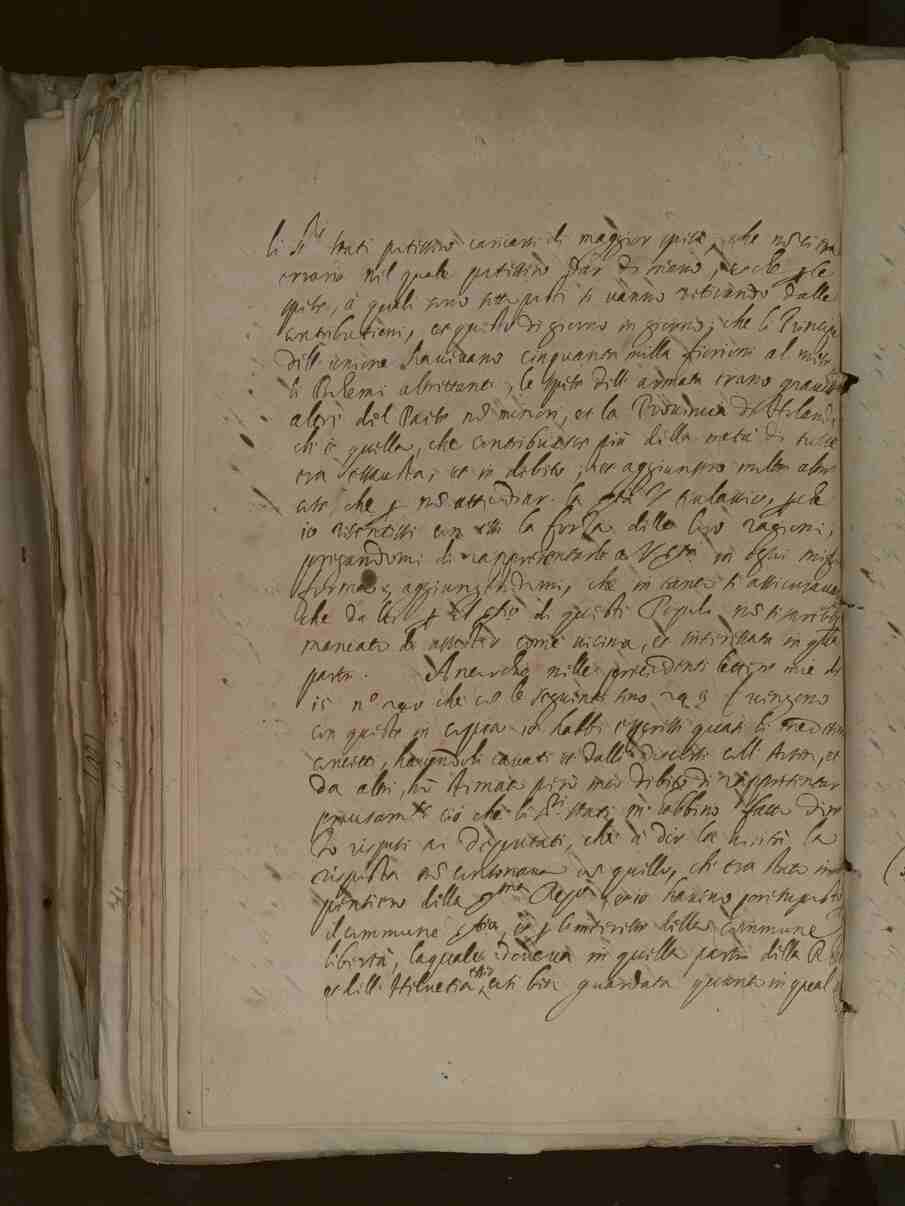 li S.ri Stati potessino caricarsi di maggior spesa, che no' ci era
errario nel quale potessino dar di mano, et che per le
spese, à quali sono sottoposti si vanno cavando dalle
contributioni, et questo di giorno in giorno; che li Principi
dell'unione havevano cinquanta milla fiorini al mese
li Bohemi altrettanti, le spese dell'armata erano grandi
altri del Paese no' minori, et la Provincia d'Holanda,
ch'è quella, che contribuisce più della metà di tutte
era essausta, et in debito; et aggiunsero molte altre
cose, che per no' attediar la Ser.tà V. tralascio, perche
io risentissi con essi la forza delle loro ragioni,
pregandomi di rappresentarle a V. Ser.tà in ogni miglior
forma, aggiungendomi, che in tanto si assicurava
che da lei per il ser.tio di questi Popoli no' si sarebbe
mancato di assister come vicina, et interessata in q.lla
parte. Ancorche nelle precedenti lettere mie di
15 n.o che con le seguenti sino vengono
con queste in coppia io habbi espressi quasi li medesimi
concetti, havendoli cavati et dalli discorsi coll'Aerssen, et
da altri, hò stimato però mio debito di rappresentar
precisam.te ciò che li S.ri Stati mi habbino fatto dire
Io risposi ai Deputati, che à dir la verità la
risposta no' consonava con quello, che era stata
intentione della Ser.ma Rep.ca, et io havevo presupposto
il commune ser.tio, et per l'interesse della commune
libertà, laquale doveva in quella parte della R
et dell'Helvetia esser così ben guardata quanto in qual